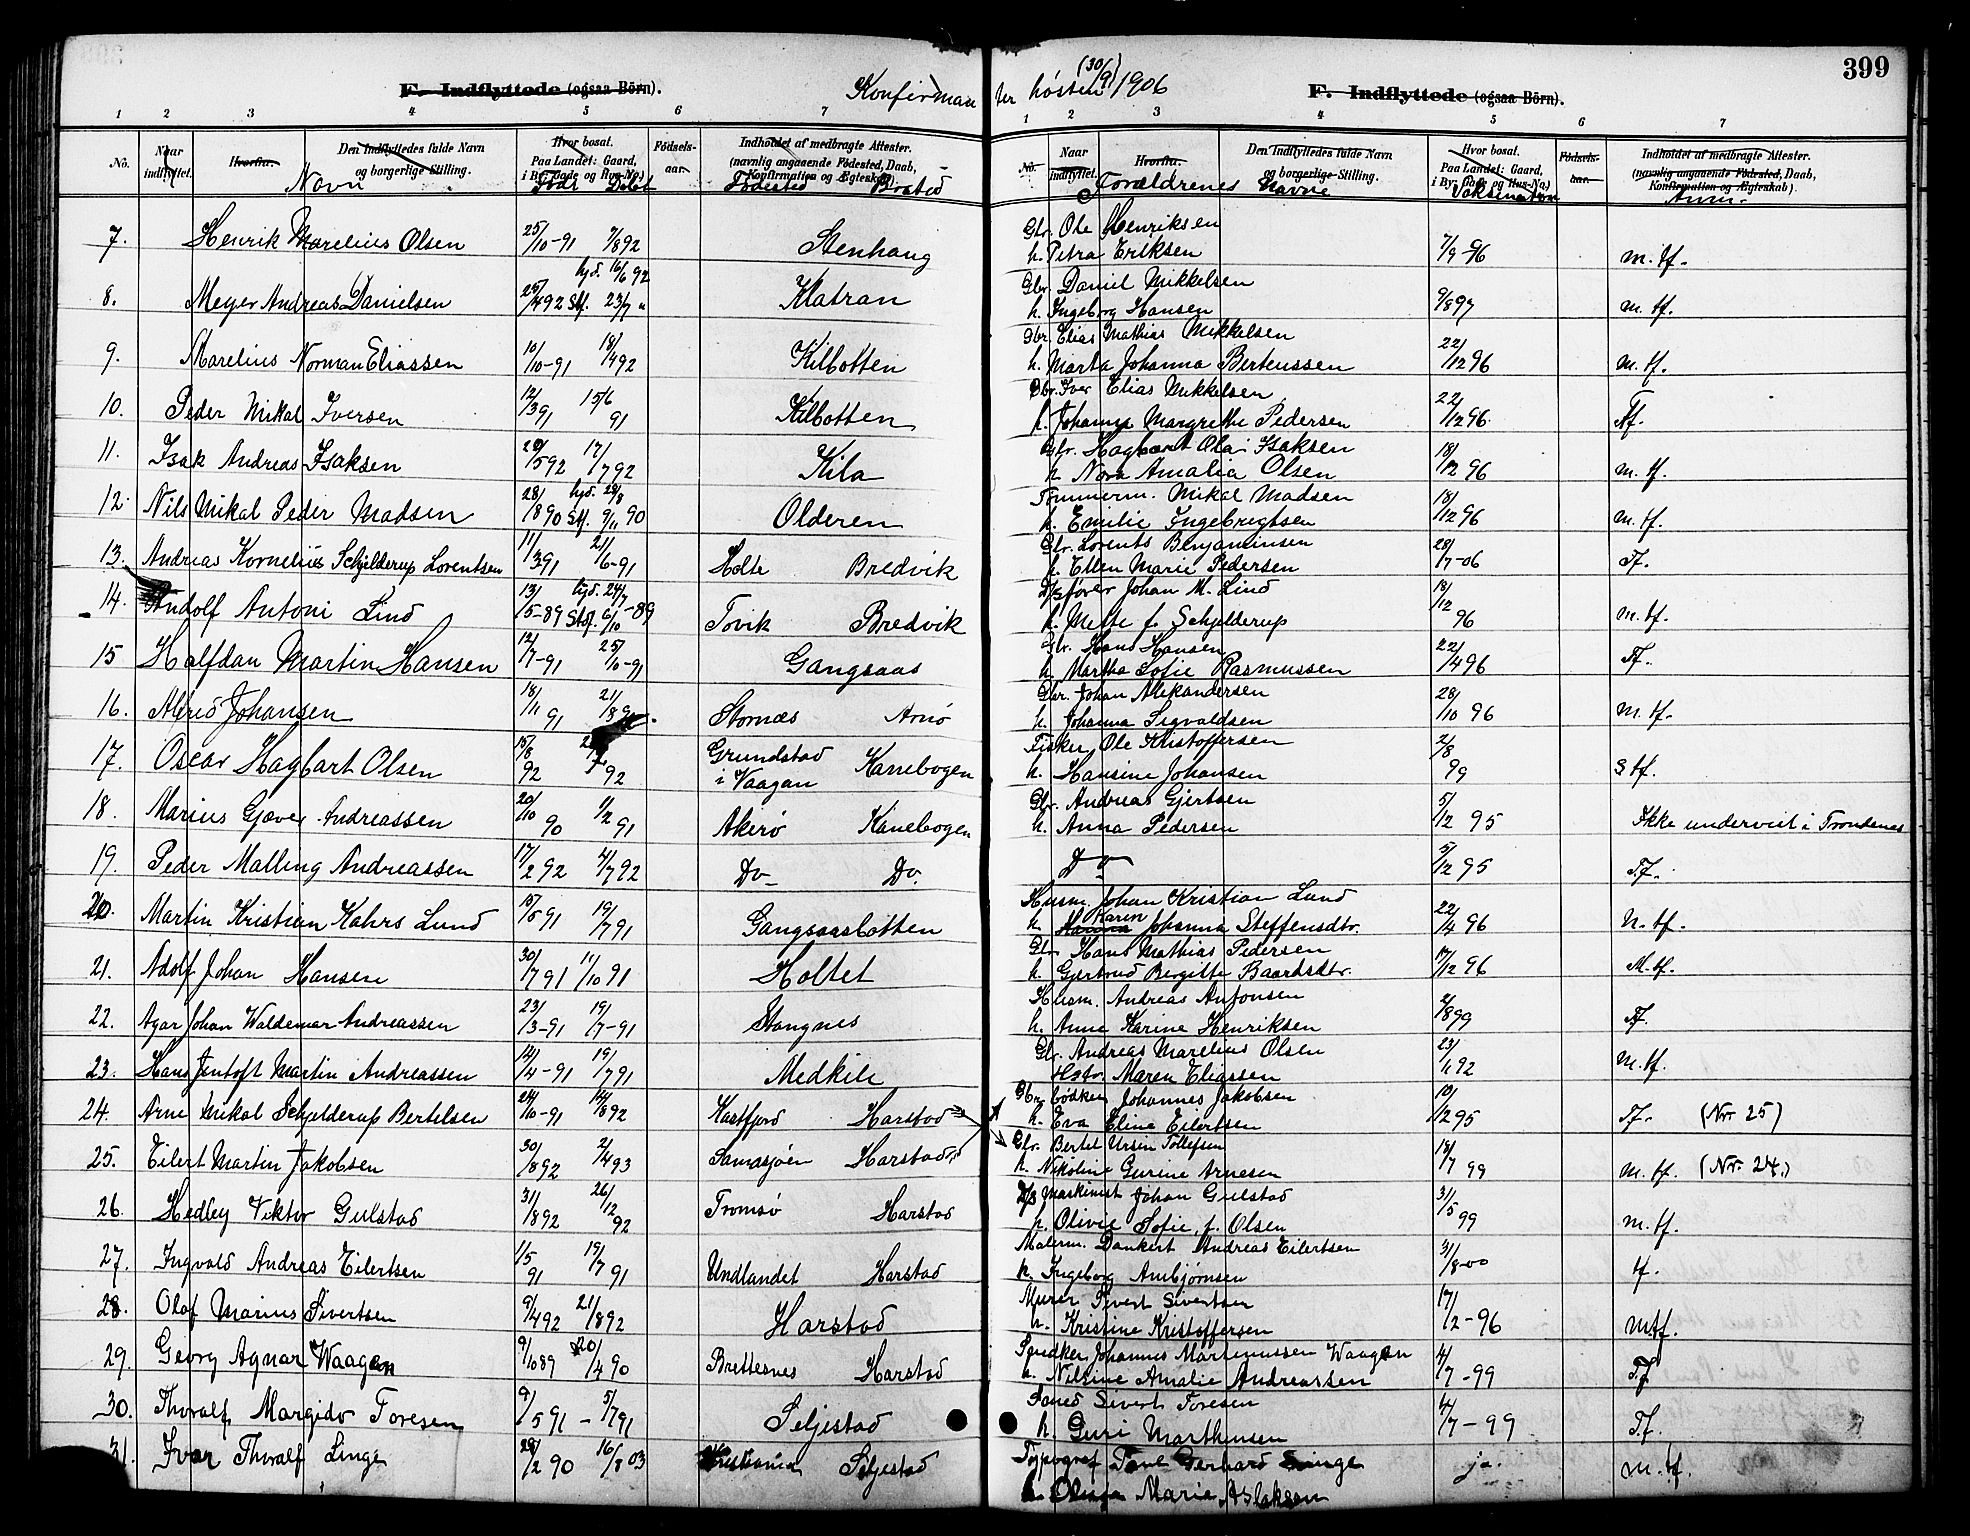 399
F. Indflyttede (ogsaa Börn).
Konfirman
ter høsten (30/9) 1906
F. Indflyttede (ogsaa Börn).
1 2 3 4 5 6 7
1 2 3 4 5 6 7
No. Naar indflyttet. Hvorfra. Den Indflyttedes fulde Navn og borgerlige Stilling. Hvor bosat. Paa Landet: Gaard, i By: Gade og Hus-No.) Fødsels-aar. Indholdet af medbragte Attester. (navnlig angaaende Fødested, Daab, Konfirmation og Ægteskab)
No. Naar indflyttet. Hvorfra. Den Indflyttedes fulde Navn og borgerlige Stilling. Hvor bosat. Paa Landet: Gaard, i By: Gade og Hus-No.) Fødsels-aar. Indholdet af medbragte Attester. (navnlig angaaende Fødested, Daab, Konfirmation og Ægteskab).
Navn Født Døbt Fødested Bosted
Forældrenes Navne Vaksination Anm.
7. Henrik Marelius Olsen 25/10-91 7/8 92 Stenhaug Gbr. Ole Henriksen
h. Petra Eriksen 7/9-96 m. tf.
8. Meyer Andreas Danielsen 25/4 92 hjd. 16/6 92 Stf. 23/7 " Klatran Gbr. Daniel Mikkelsen
h. Ingeborg Hansen 9/8 97 m. tf.
9. Marelius Norman Eliassen 10/10-91 18/4 92 Kilbotten Gbr. Elias Mathias Mikkelsen
h. Marta Johanna Berteussen 22/12 96 m. tf.
10. Peder Mikal Iversen 12/3 91 15/6 91 Kilbotten Gbr. Iver Elias Mikkelsen
h. Johanna Margrethe Pedersen 22/12 96. Tf.
11. Isak Andreas Isaksen 29/5 92 17/7 92 Kila Gbr. Hagbart Olai Isaksen
h. Nora Amalia Olsen 18/12 96 m. tf.
12. Nils Mikal Peder Madsen 28/8 90 hjd. 28/8 Stf. 9/11 90 Olderen Tømmerm. Mikal Madsen
h. Emilie Ingebrigtsen 18/12 96 m. tf.
13. Andreas Kornelius Schjelderup Lorentsen 11/3 91 21/6-91 Holte Bredvik Gbr. Lorents Benjaminsen
h. Ellen Marie Pedersen 28/7-06 Tf.
14. Andolf Antoni Lind 13/5-89 hjd. 24/7 Stf. 6/10-89 Tovik Bredvik D/sfører Johan M. Lind
h. Mette f. Schjelderup 18/12 96 m. tf.
15 Halfdan Martin Hansen 12/7-91 25/10-91 Gangsaas Gbr. Hans Hansen
h. Martha Sofie Rasmussen 22/4 96 Tf.
16. Alfred Johansen 18/11 91 21/8 91. Stornæs Arnø Gbr. Johan Aleksandersen
h. Johanna Sigvaldsen 28/10 96 m. tf.
17. Oscar Hagbart Olsen 15/8 92 92 Grundstad i Vaagan Kanebogen Fisker Ole Kristoffersen
h. Hansine Johansen 2/8 99 S tf.
18. Marius Gjæver Andreassen 20/10 90 1/2 91 Akerø Kanebogen Gbr. Andreas Gjertsen
h. Anna Pedersen 5/12 95 Ikke undervist i Trondenes
19. Peder Malling Andreassen 17/2 92 4/7 92 Do Do. Do 5/12 95 Tf.
20. Martin Kristian Kahrs Lund 15/5 91 19/7 91 Gangsaasbotten Husm. Johan Kristian Lund
h. Karen Johanna Steffensdtr. 22/4 96 N. tf.
21. Adolf Johan Hansen 30/7 91 11/10 91 Holtet Gbr Hans Mathias Pedersen
h. Gjertrud Bergitte Baardsdtr. 17/12 96 M. tf.
22. Agar Johan Waldemar Andreassen 23/3-91 19/7-91 Stangnes Husm. Andreas Antonsen
h. Anne Karine Henriksen 2/8 99 Tf.
23. Hans Jentoft Martin Andreassen 14/4-91 19/7 91 Medkile Gbr. Andreas Marelius Olsen
Hstr. Maren Eliassen 23/1 92 m. tf.
24. Arne Mikal Schjelderup Bertelsen 24/10-91 14/8 92 Kastfjord Harstad Gbr. bødker Johannes Jakobsen
h. Eva Eline Eilertsen 10/12 95 Tf. (Nr. 25)
25. Eilert Martin Jakobsen 30/8 92 2/4 93 Sandsjøen Harstad Gbr. Bertel Ursin Tollefsen
h. Nikoline Gurine Arnesen 18/7 99 m. tf. (Nr. 24.)
26. Hedley Viktor Gulstad 31/8 92 26/12 92 Tromsø Harstad D/S Maskinist Johan Gulstad
h. Olivie Sofie, f. Olsen 31/5 99 m. tf.
27. Ingvald Andreas Eilertsen 1/5 91 19/7 91 Undlandet Harstad Malerm. Dankert Andreas Eilertsen
h. Ingeborg Ambjørnsen 31/8-00 tf.
28. Olaf Marius Sivertsen 9/4 92 21/8 92 Harstad Murer Sivert Sivertsen
h. Kristine Kristoffersen 17/2-96 mtf.
29. Georg Agnar Waagan 9/10 89 20/4 90 Brettesnes Harstad Snedker Johannes Martinussen Waagan
h. Nilsine Amalie Andreassen 4/7-99 Tf
30. Thoralf Margido Foresen 9/5 91 - 5/7 91 Seljestad Sivert Foresen
h. Guri Marthinsen 4/7-99 Tf.
31. Ivar Thoralf Linge 29/2 90 16/8 03 Kristiania Seljestad Typograf Gerhard Linge
h. Marie Aslaksen ja. m. tf.